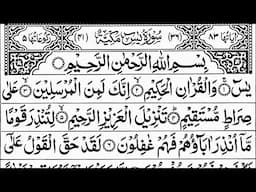 اٰيَاتُهَا ٨٣ (٣٦) سُوْرَةُ يٰسٓ مَكِّيَّةٌ (٤١) رُكُوْعَاتُهَا ٥
بِسْمِ اللّٰهِ الرَّحْمٰنِ الرَّحِيْمِ
يٰسٓ وَالْقُرْاٰنِ الْحَكِيْمِ اِنَّكَ لَمِنَ الْمُرْسَلِيْنَ عَلٰى
صِرَاطٍ مُّسْتَقِيْمٍ تَنْزِيْلَ الْعَزِيْزِ الرَّحِيْمِ لِتُنْذِرَ قَوْمًا
مَّاۤ اُنْذِرَ اٰبَآؤُهُمْ فَهُمْ غٰفِلُوْنَ لَقَدْ حَقَّ الْقَوْلُ عَلٰۤى